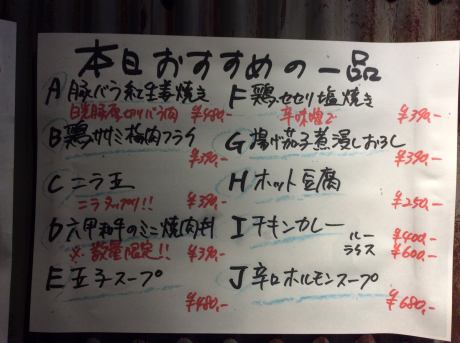 本日おすすめの一品
A 豚バラ紅生姜焼き
¥480,-
B 鶏ササミ梅肉フライ
¥390,-
C ニラ玉
ニラタップリ!! ¥390,-
D 六甲和牛のミニ焼肉丼
※数量限定!! ¥390,-
E 玉子スープ
¥480,-
F 鶏セセリ塩焼き
辛味噌で ¥390,-
G 揚げ茄子煮浸しおろし
¥390,-
H ホット豆腐
¥250,-
I チキンカレー ルー ¥400,-
ライス ¥600,-
J 辛口ホルモンスープ
¥680,-